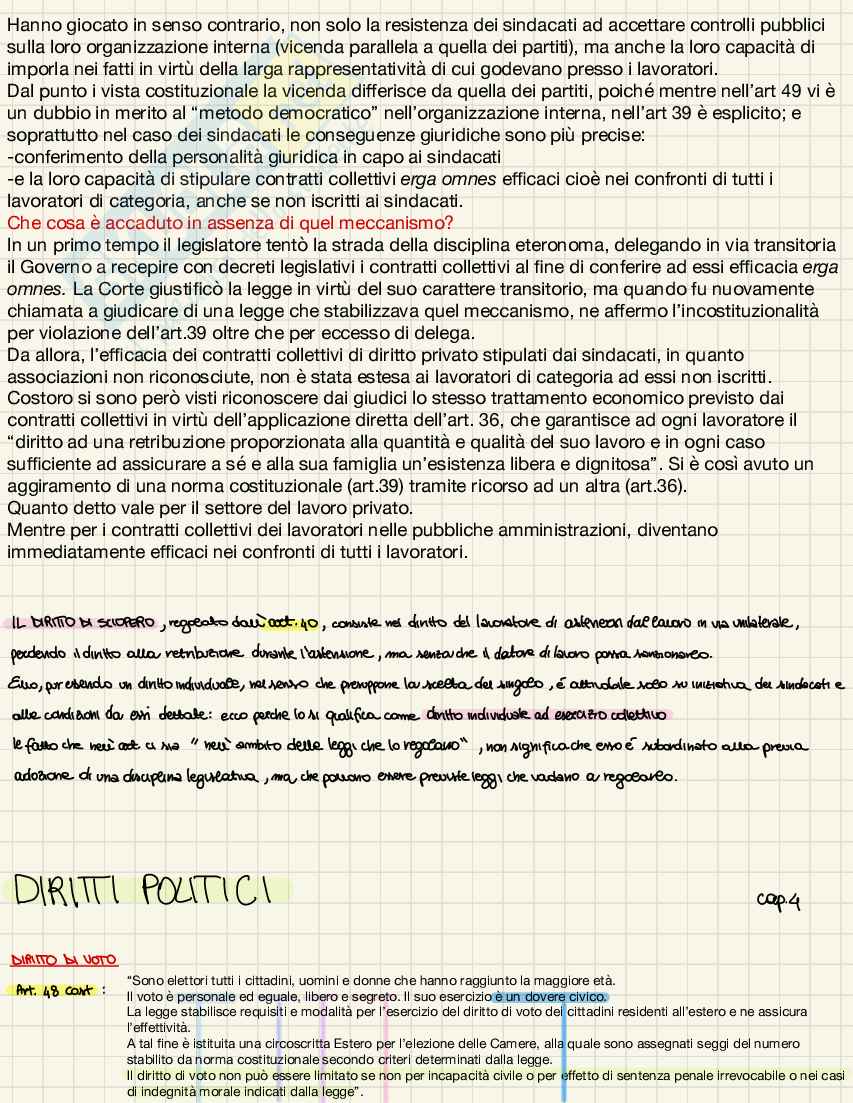 Hanno giocato in senso contrario, non solo la resistenza dei sindacati ad accettare controlli pubblici
sulla loro organizzazione interna (vicenda parallela a quella dei partiti), ma anche la loro capacità di
imporla nei fatti in virtù della larga rappresentatività di cui godevano presso i lavoratori.
Dal punto i vista costituzionale la vicenda differisce da quella dei partiti, poiché mentre nell'art 49 vi è
un dubbio in merito al “metodo democratico” nell'organizzazione interna, nell'art 39 è esplicito; e
soprattutto nel caso dei sindacati le conseguenze giuridiche sono più precise:
-conferimento della personalità giuridica in capo ai sindacati
-e la loro capacità di stipulare contratti collettivi erga omnes efficaci cioè nei confronti di tutti i
lavoratori di categoria, anche se non iscritti ai sindacati.
Che cosa è accaduto in assenza di quel meccanismo?
In un primo tempo il legislatore tentò la strada della disciplina eteronoma, delegando in via transitoria
il Governo a recepire con decreti legislativi i contratti collettivi al fine di conferire ad essi efficacia erga
omnes. La Corte giustificò la legge in virtù del suo carattere transitorio, ma quando fu nuovamente
chiamata a giudicare di una legge che stabilizzava quel meccanismo, ne affermo l'incostituzionalità
per violazione dell'art.39 oltre che per eccesso di delega.
Da allora, l'efficacia dei contratti collettivi di diritto privato stipulati dai sindacati, in quanto
associazioni non riconosciute, non è stata estesa ai lavoratori di categoria ad essi non iscritti.
Costoro si sono però visti riconoscere dai giudici lo stesso trattamento economico previsto dai
contratti collettivi in virtù dell'applicazione diretta dell'art. 36, che garantisce ad ogni lavoratore il
“diritto ad una retribuzione proporzionata alla quantità e qualità del suo lavoro e in ogni caso
sufficiente ad assicurare a sé e alla sua famiglia un'esistenza libera e dignitosa”. Si è così avuto un
aggiramento di una norma costituzionale (art.39) tramite ricorso ad un altra (art.36).
Quanto detto vale per il settore del lavoro privato.
Mentre per i contratti collettivi dei lavoratori nelle pubbliche amministrazioni, diventano
immediatamente efficaci nei confronti di tutti i lavoratori.
IL DIRITTO DI SCIOPERO, regolato dall'art.40, consiste nel diritto del lavoratore di astenersi dal lavoro in via unilaterale,
perdendo il diritto alla retribuzione durante l'astensione, ma senza che il datore di lavoro possa sanzionarlo.
Esso, pur essendo un diritto individuale, nel senso che presuppone la scelta del singolo, è attivabile solo su iniziativa dei sindacati e
alle condizioni da essi dettate: ecco perche lo si qualifica come diritto individuale ad esercizio collettivo
le fatto che nell'art. ci sia “nell'ambito delle leggi che lo regolano”, non significa che esso è subordinato alla previa
adozione di una disciplina legislativa, ma che possono essere previste leggi che vadano a regolarlo.
DIRITTI POLITICI
cap.4
DIRITTO DI VOTO
Art. 48 cost :
“Sono elettori tutti i cittadini, uomini e donne che hanno raggiunto la maggiore età.
Il voto è personale ed eguale, libero e segreto. Il suo esercizio è un dovere civico.
La legge stabilisce requisiti e modalità per l'esercizio del diritto di voto dei cittadini residenti all'estero e ne assicura
l'effettività.
A tal fine è istituita una circoscritta Estero per l'elezione delle Camere, alla quale sono assegnati seggi del numero
stabilito da norma costituzionale secondo criteri determinati dalla legge.
Il diritto di voto non può essere limitato se non per incapacità civile o per effetto di sentenza penale irrevocabile o nei casi
di indegnità morale indicati dalla legge”.